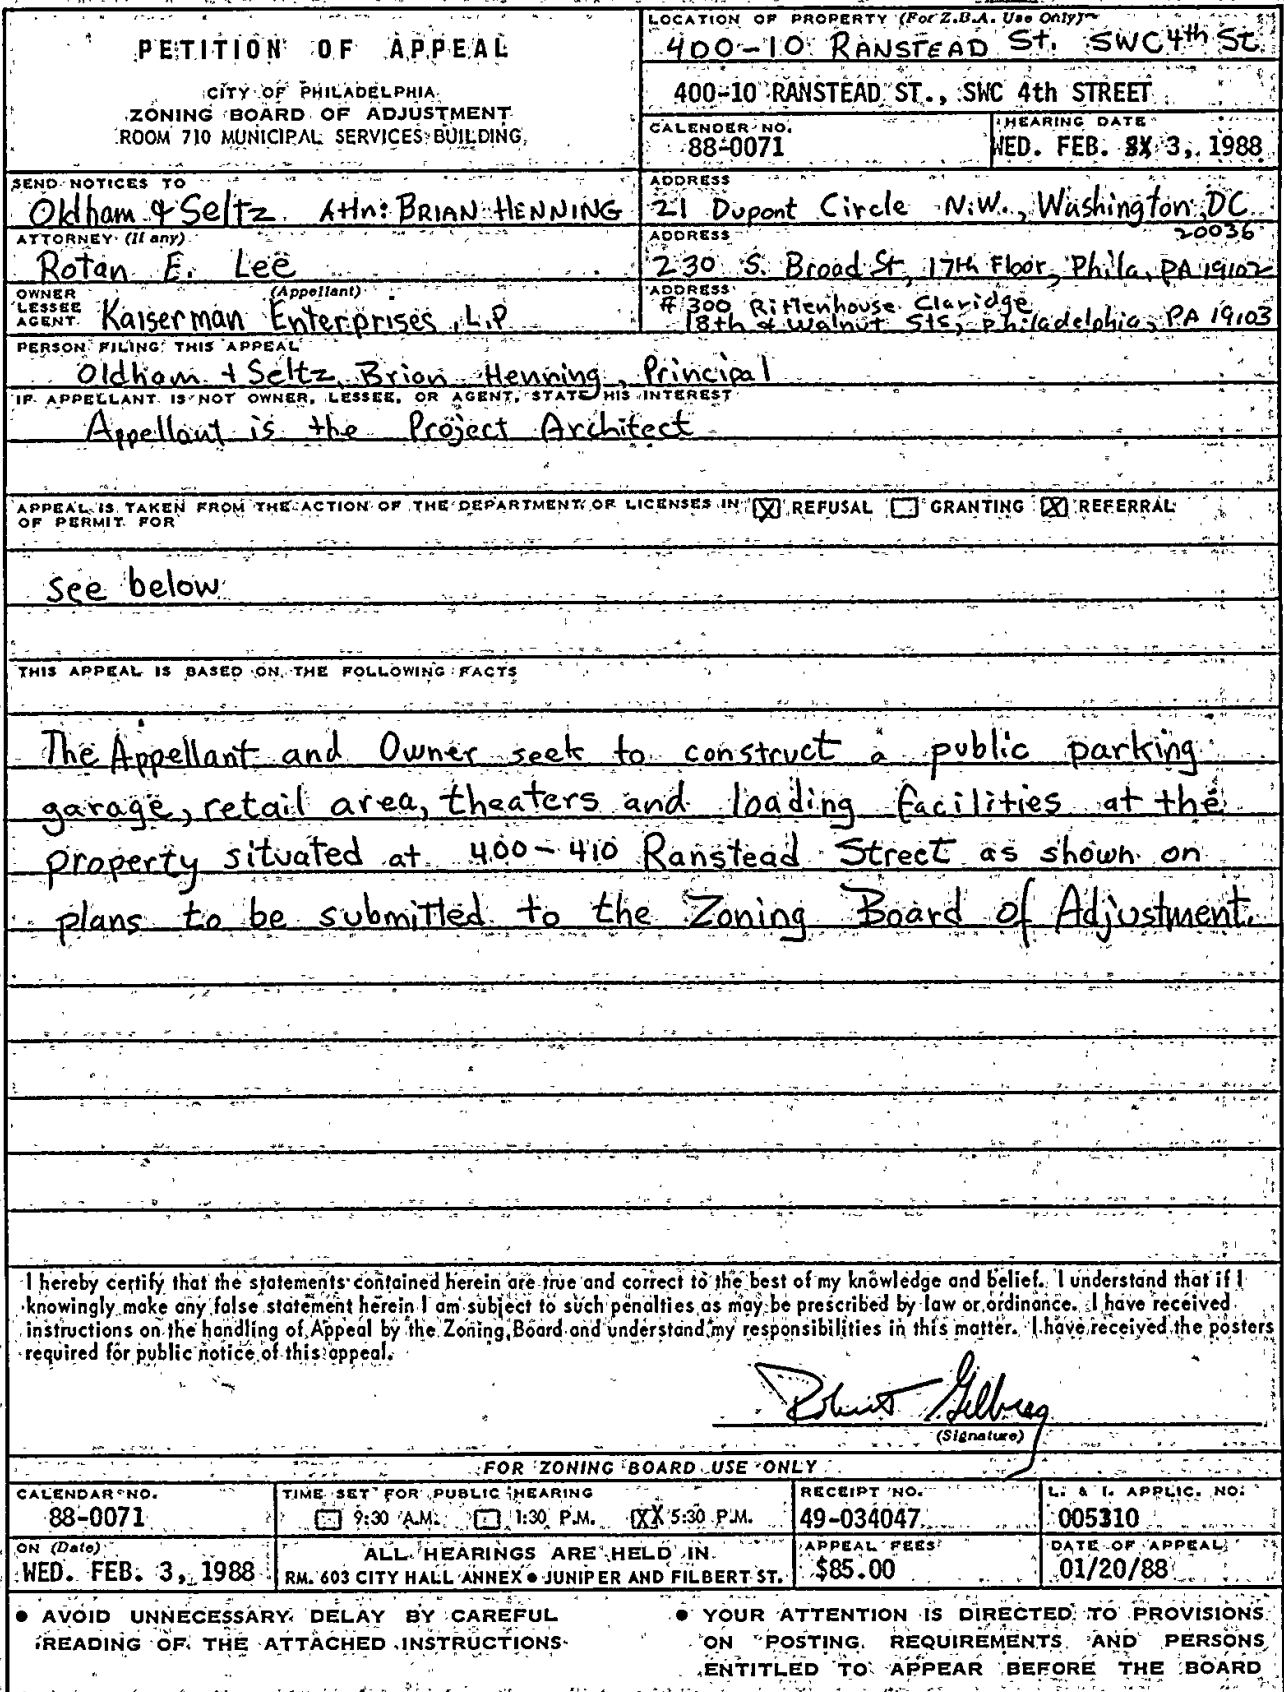 PETITION OF APPEAL
CITY OF PHILADELPHIA
ZONING BOARD OF ADJUSTMENT
ROOM 710 MUNICIPAL SERVICES BUILDING
LOCATION OF PROPERTY (For Z.B.A. Use Only)
400-10 RANSTEAD St. SWC 4th St.
400-10 RANSTEAD ST., SWC 4th STREET
CALENDER NO.
88-0071
HEARING DATE
WED. FEB. 3, 1988
SEND NOTICES TO
Oldham & Seltz Attn: BRIAN HENNING
ADDRESS
21 Dupont Circle N.W., Washington, DC
20036
ATTORNEY (If any)
Rotan E. Lee
ADDRESS
230 S. Broad St, 17th Floor, Phila, PA 19102
OWNER
LESSEE
AGENT
(Appellant)
Kaiserman Enterprises, L.P
ADDRESS
# 300 Rittenhouse Claridge
18th & Walnut Sts, Philadelphia, PA 19103
PERSON FILING THIS APPEAL
Oldham & Seltz, Brian Henning, Principal
IF APPELLANT IS NOT OWNER, LESSEE, OR AGENT, STATE HIS INTEREST
Appellant is the Project Architect
APPEAL IS TAKEN FROM THE ACTION OF THE DEPARTMENT OF LICENSES IN [X] REFUSAL [ ] GRANTING [X] REFERRAL
OF PERMIT FOR
see below
THIS APPEAL IS BASED ON THE FOLLOWING FACTS
The Appellant and Owner seek to construct a public parking
garage, retail area, theaters and loading facilities at the
property situated at 400-410 Ranstead Street as shown on
plans to be submitted to the Zoning Board of Adjustment.
I hereby certify that the statements contained herein are true and correct to the best of my knowledge and belief. I understand that if I
knowingly make any false statement herein I am subject to such penalties as may be prescribed by law or ordinance. I have received
instructions on the handling of Appeal by the Zoning Board and understand my responsibilities in this matter. I have received the posters
required for public notice of this appeal.
Robert
(Signature)
FOR ZONING BOARD USE ONLY
CALENDAR NO.
88-0071
TIME SET FOR PUBLIC HEARING
[ ] 9:30 A.M. [ ] 1:30 P.M. [XX] 5:30 P.M.
RECEIPT NO.
49-034047
L. & I. APPLIC. NO.
005310
ON (Date)
WED. FEB. 3, 1988
ALL HEARINGS ARE HELD IN
RM. 603 CITY HALL ANNEX • JUNIPER AND FILBERT ST.
APPEAL FEES
$85.00
DATE OF APPEAL
01/20/88
• AVOID UNNECESSARY DELAY BY CAREFUL
READING OF THE ATTACHED INSTRUCTIONS
• YOUR ATTENTION IS DIRECTED TO PROVISIONS
ON POSTING REQUIREMENTS AND PERSONS
ENTITLED TO APPEAR BEFORE THE BOARD